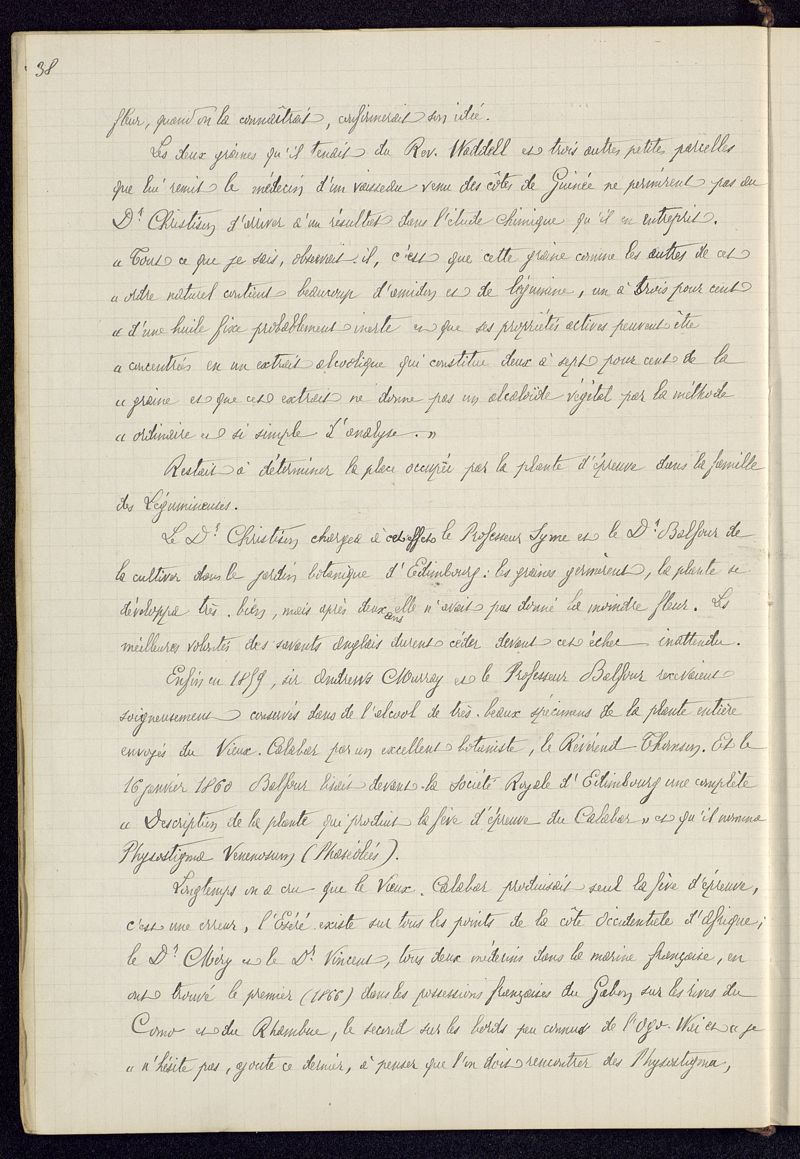 38
fleur, quand on la connaîtrait, confirmerait son idée.
Les deux graines qu'il tenait du Rev. Waddell et trois autres petites parcelles
que lui remit le médecin d'un vaisseau venu des côtes de Guinée ne permirent pas au
Dr Christison d'arriver à un résultat dans l'étude chimique qu'il en entreprit.
« Tout ce que je sais, observait-il, c'est que cette graine comme les autres de cet
« ordre naturel contient beaucoup d'amidon et de légumine, un à trois pour cent
« d'une huile fixe probablement inerte et que ses propriétés actives peuvent être
« concentrées en un extrait alcoolique qui constitue deux à sept pour cent de la
« graine et que cet extrait ne donne pas un alcaloïde végétal par la méthode
« ordinaire et si simple d'analyse. »
Restait à déterminer la place occupée par la plante d'épreuve dans la famille
des Légumineuses.
Le Dr Christison chargea à cet effet le Professeur Syme et le Dr Balfour de
la cultiver dans le jardin botanique d'Edimbourg : les graines germèrent, la plante se
développa très-bien, mais après deux ans elle n'avait pas donné la moindre fleur. Les
meilleures volontés des savants anglais durent céder devant cet échec inattendu.
Enfin en 1859, sir Andrews Murray et le Professeur Balfour recevaient
soigneusement conservés dans de l'alcool de très-beaux spécimens de la plante entière
envoyés du Vieux-Calabar par un excellent botaniste, le Révérend Thomson. Et le
16 janvier 1860 Balfour lisait devant la Société Royale d'Edimbourg une complète
« Description de la plante qui produit la fève d'épreuve du Calabar » et qu'il nomma
Physostigma Venenosum (Phaséolées).
Longtemps on a cru que le Vieux-Calabar produisait seul la fève d'épreuve,
c'est une erreur, l'Eséré existe sur tous les points de la côte Occidentale d'Afrique ;
le Dr Méry et le Dr Vincent, tous deux médecins dans la marine française, en
ont trouvé le premier (1866) dans les possessions françaises du Gabon sur les rives du
Como et du Rhamboe, le second sur les bords peu connus de l'Ogo-Wai et « je
« n'hésite pas, ajoute ce dernier, à penser que l'on doit rencontrer des Physostigma,